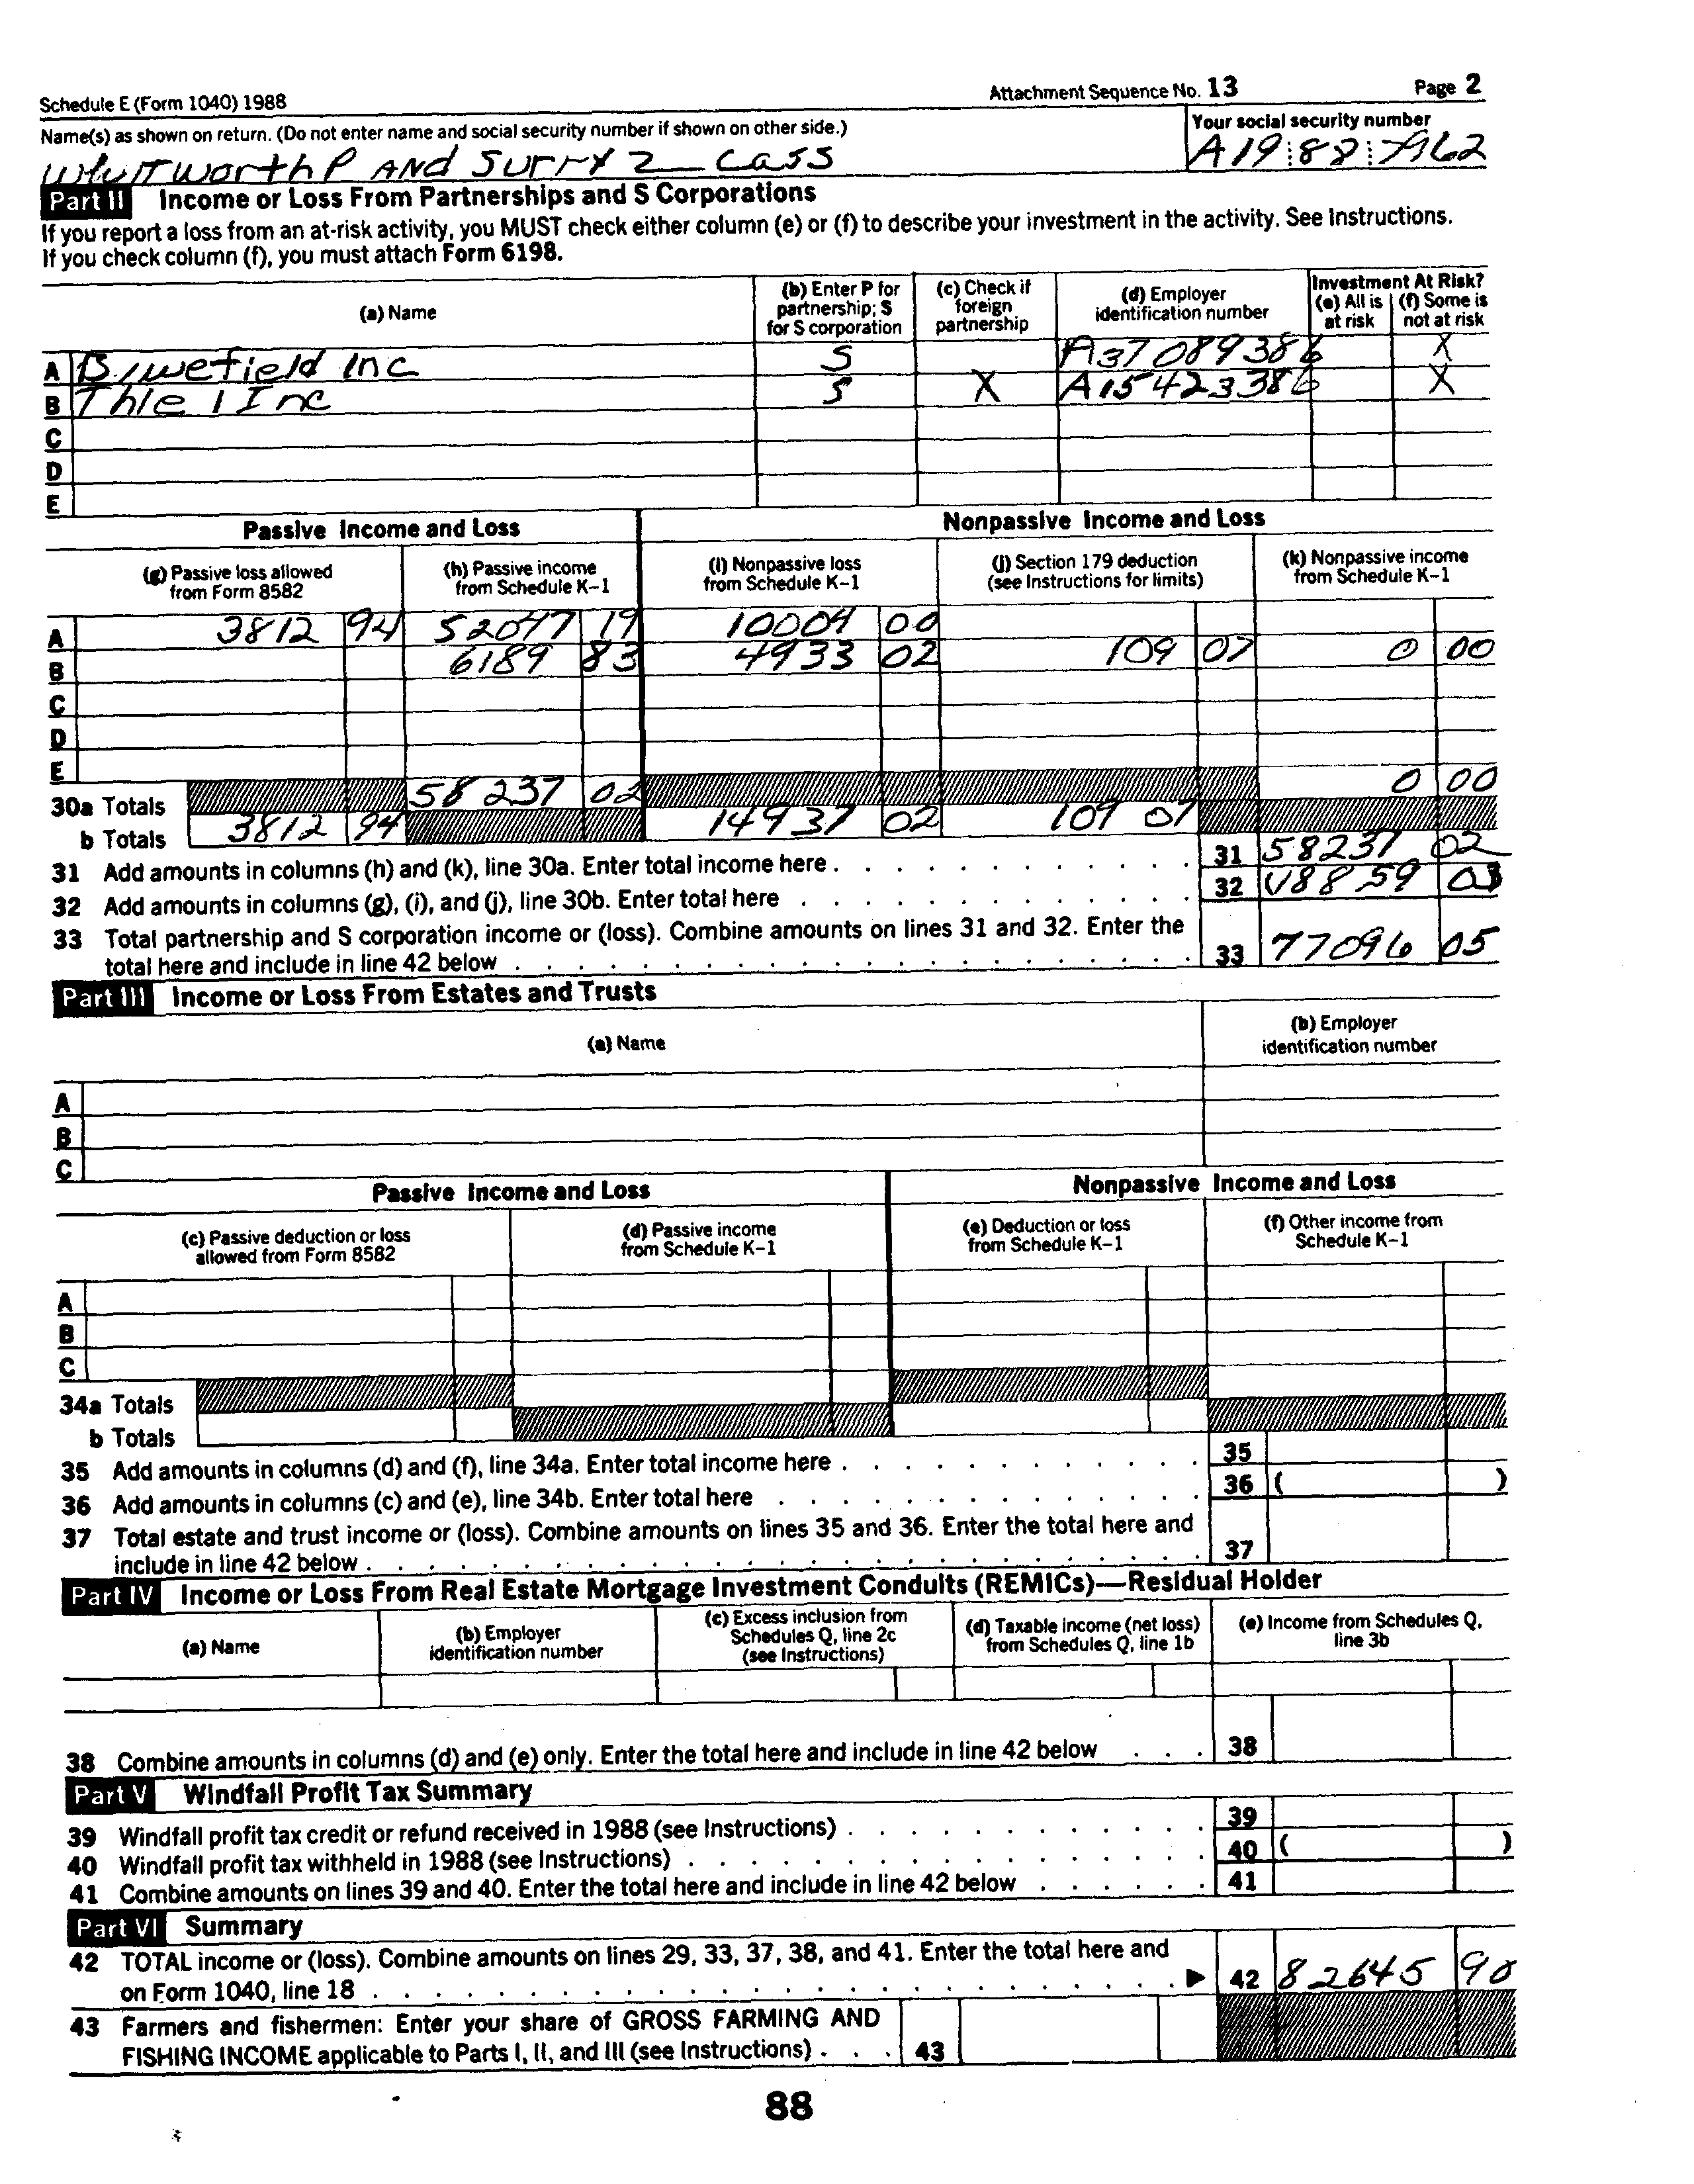 Schedule E (Form 1040) 1988 Attachment Sequence No. 13 Page 2
Name(s) as shown on return. (Do not enter name and social security number if shown on other side.) Your social security number
Whitworth P AND Surry Z Cass A19 88 7962
Part II Income or Loss From Partnerships and S Corporations
If you report a loss from an at-risk activity, you MUST check either column (e) or (f) to describe your investment in the activity. See Instructions.
If you check column (f), you must attach Form 6198.
(a) Name (b) Enter P for partnership; S for S corporation (c) Check if foreign partnership (d) Employer identification number Investment At Risk? (e) All is at risk (f) Some is not at risk
A Inc S A37089386 X
B Thiel Inc S X A15423386 X
C
D
E
Passive Income and Loss Nonpassive Income and Loss
(g) Passive loss allowed from Form 8582 (h) Passive income from Schedule K-1 (i) Nonpassive loss from Schedule K-1 (j) Section 179 deduction (see Instructions for limits) (k) Nonpassive income from Schedule K-1
A 3812 94 52047 19 10004 00
B 6189 83 4933 02 109 07 0 00
C
D
E
30a Totals 58237 02 0 00
b Totals 3812 94 14937 02 109 07
31 Add amounts in columns (h) and (k), line 30a. Enter total income here . . . 31 58237 02
32 Add amounts in columns (g), (i), and (j), line 30b. Enter total here . . . 32 (18859 03
33 Total partnership and S corporation income or (loss). Combine amounts on lines 31 and 32. Enter the
total here and include in line 42 below . . . 33 77096 05
Part III Income or Loss From Estates and Trusts
(a) Name (b) Employer identification number
A
B
C
Passive Income and Loss Nonpassive Income and Loss
(c) Passive deduction or loss allowed from Form 8582 (d) Passive income from Schedule K-1 (e) Deduction or loss from Schedule K-1 (f) Other income from Schedule K-1
A
B
C
34a Totals
b Totals
35 Add amounts in columns (d) and (f), line 34a. Enter total income here . . . 35
36 Add amounts in columns (c) and (e), line 34b. Enter total here . . . 36 ( )
37 Total estate and trust income or (loss). Combine amounts on lines 35 and 36. Enter the total here and
include in line 42 below . . . 37
Part IV Income or Loss From Real Estate Mortgage Investment Conduits (REMICs)—Residual Holder
(a) Name (b) Employer identification number (c) Excess inclusion from Schedules Q, line 2c (see Instructions) (d) Taxable income (net loss) from Schedules Q, line 1b (e) Income from Schedules Q, line 3b
38 Combine amounts in columns (d) and (e) only. Enter the total here and include in line 42 below . . . 38
Part V Windfall Profit Tax Summary
39 Windfall profit tax credit or refund received in 1988 (see Instructions) . . . 39
40 Windfall profit tax withheld in 1988 (see Instructions) . . . 40 ( )
41 Combine amounts on lines 39 and 40. Enter the total here and include in line 42 below . . . 41
Part VI Summary
42 TOTAL income or (loss). Combine amounts on lines 29, 33, 37, 38, and 41. Enter the total here and
on Form 1040, line 18 . . . ▶ 42 82645 90
43 Farmers and fishermen: Enter your share of GROSS FARMING AND
FISHING INCOME applicable to Parts I, II, and III (see Instructions) . . . 43
88